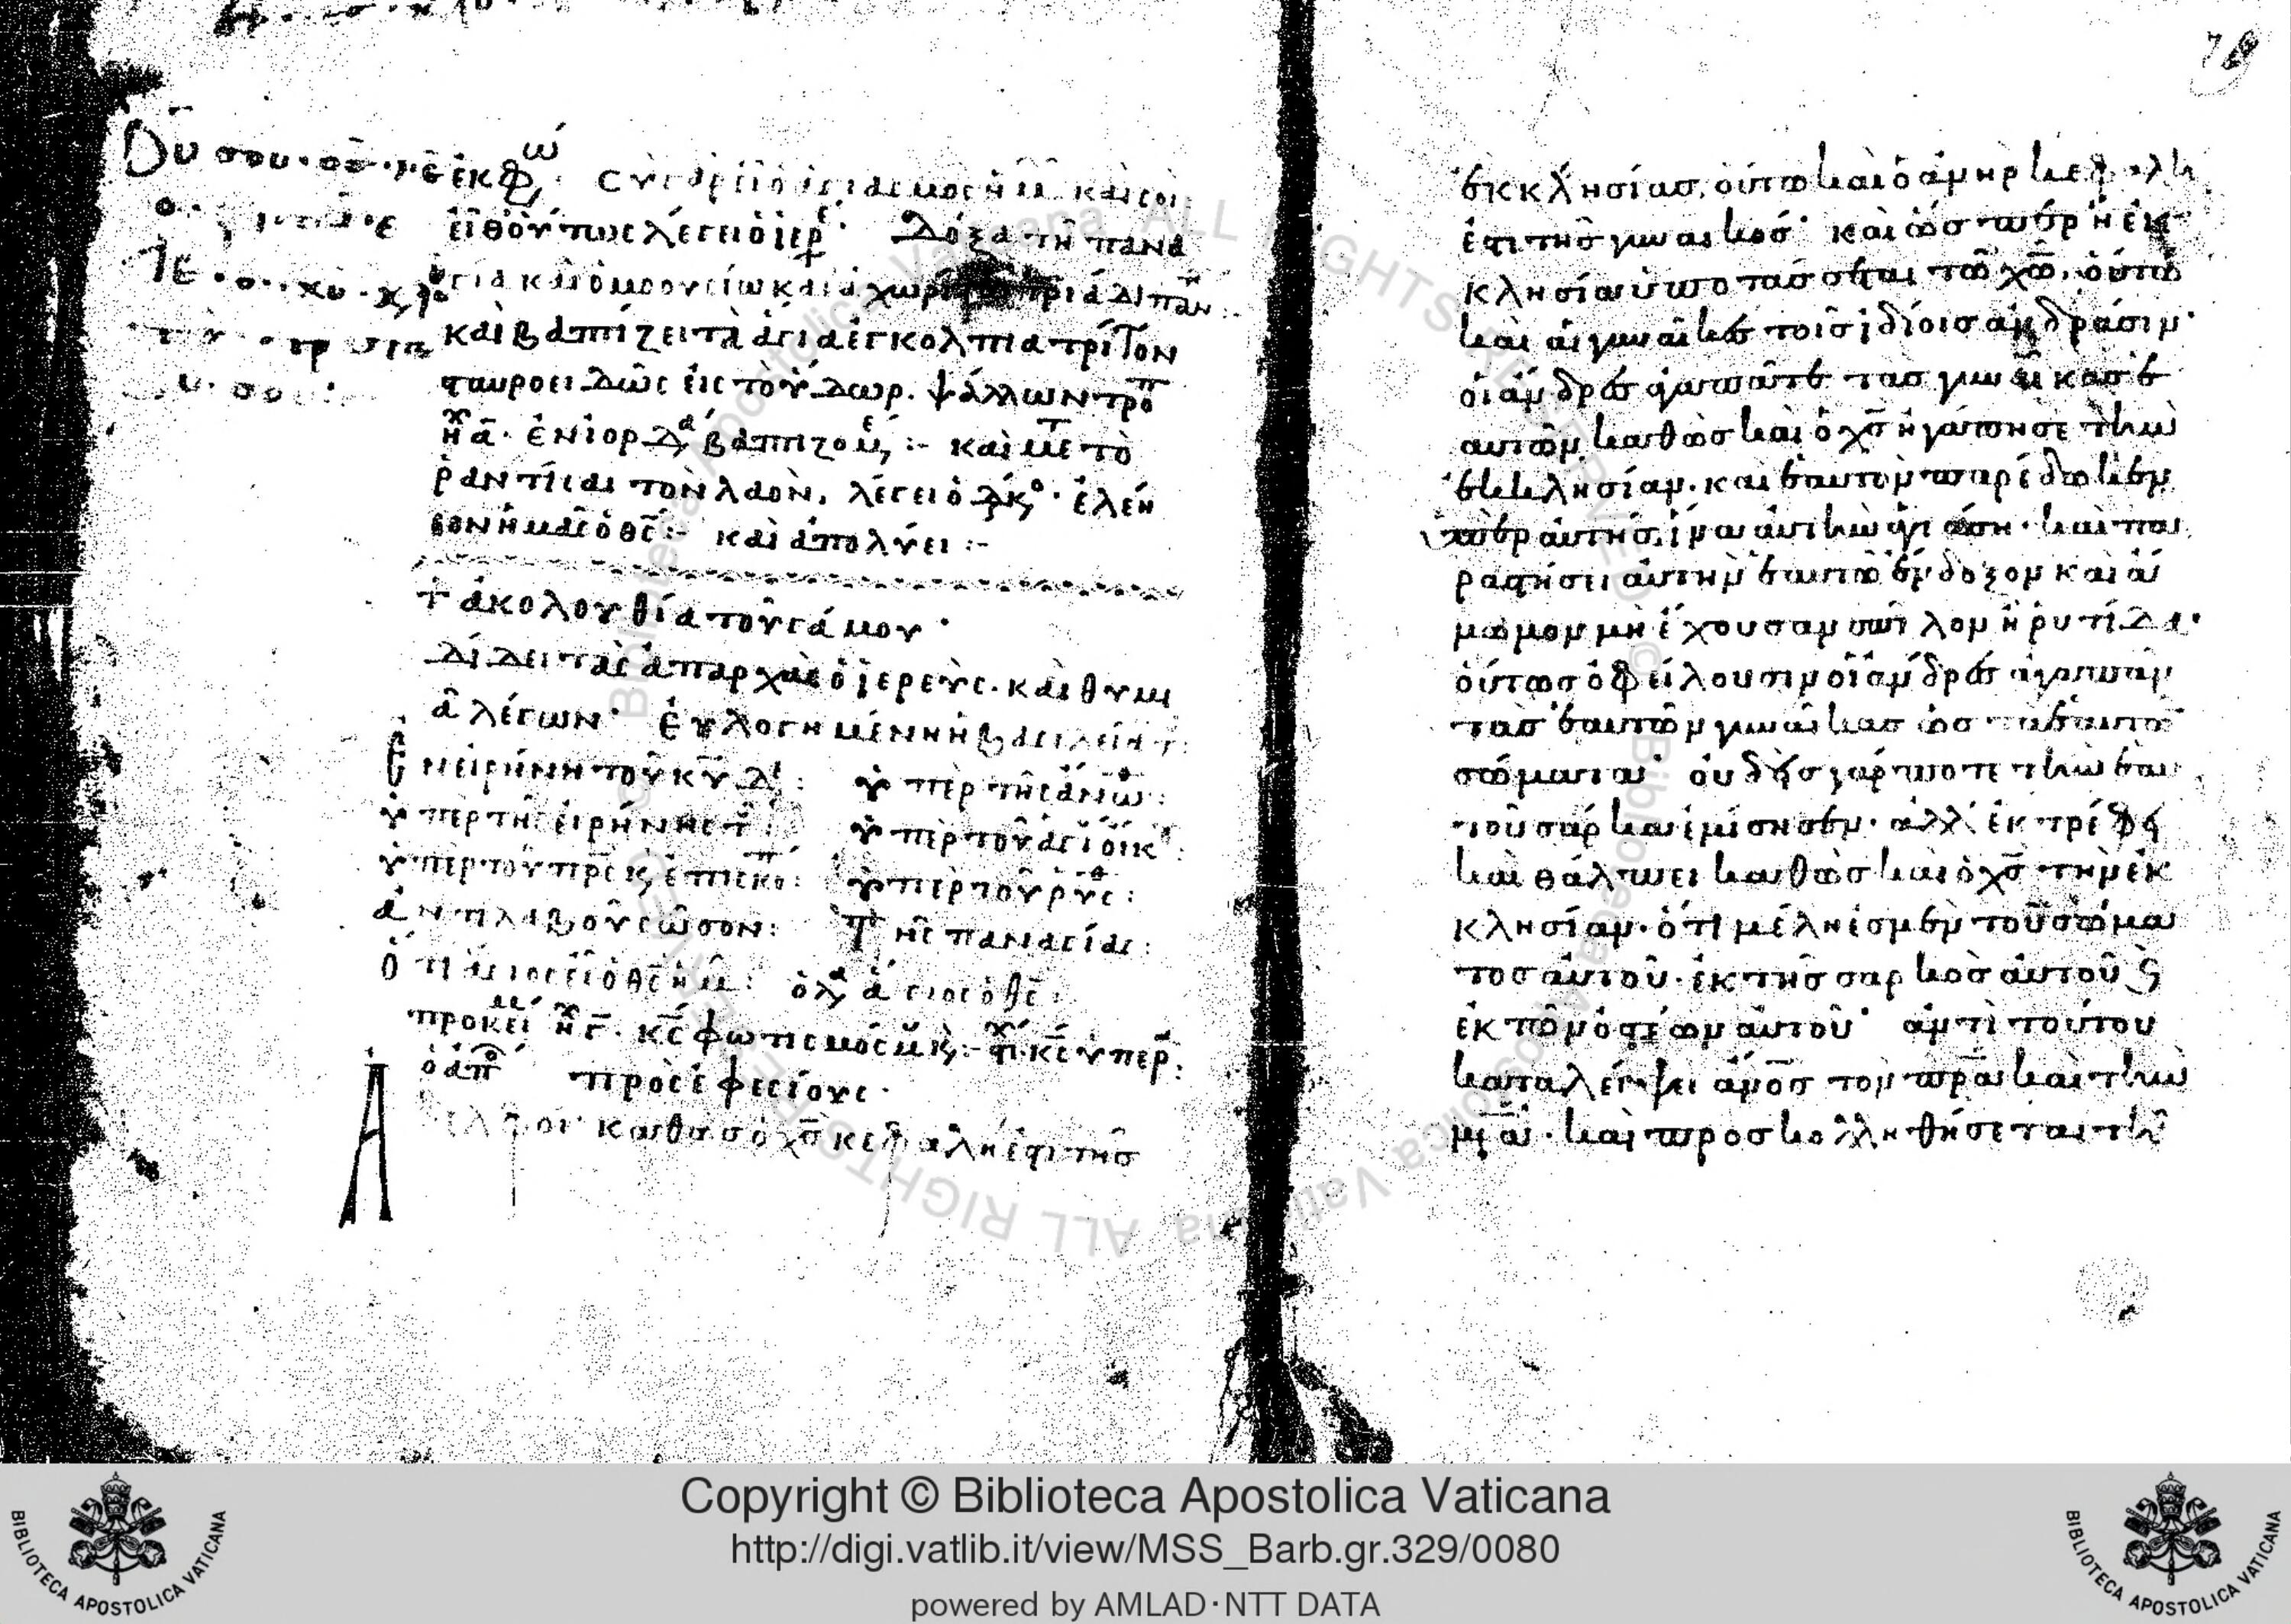 σου
Σὺ γὰρ εἶ ὁ ἁγιασμος ἡμ καὶ σοὶ:
εἶθ οὕτως λέγει ὁ ἱερ. Δόξα τῆ πανα
γία καὶ ὁμοουσίω καὶ ἀχωρί τριάδι πάν:
καὶ βαπτίζει τὰ ἁγια ἐγκολπια τρίτον
σταυροειδῶς εἰς τὸ ὕδωρ. ψάλλων τρο
ἦχ α. ἐν ἰορδ βαπτιζομ :- καὶ με τὸ
ῥαντίσαι τὸν λαὸν, λέγει ὁ διάκ. ἐλέη
σον ἡμᾶς ὁ θς :- καὶ ἀπολύει :-
+ ἀκολουθία τοῦ γάμου.
Δίδει τὰς ἀπαρχὰς ὁ ἱερεὺς. καὶ θυμι
ᾶ λέγων. ἐυλογημένη ἡ βασιλεία τ:
Ἐν εἰρήνη τοῦ κυ δ: ὑπὲρ τῆς ἄνω:
ὑπὲρ τῆς εἰρήνης τ: ὑπὲρ τοῦ ἁγί οἴκ:
ὑπὲρ τοῦ πρς κ ἐπισκο: ὑπὲρ τοῦ ῥυσ:
ἀντιλαβοῦ σῶσον: Τῆς παναγίας:
ὅτι ἅγιος εἶ ὁ θς ἡμ: ὁ λα ἅγιος ὁ θς:
προκεί ἦχ γ. κς φωτισμός μ κ :- στι. κς ὑπερ:
ὁ ἀπο πρὸς ἐφεσίους.
Ἀδελφοι καθὼς ὁ χς κεφαλὴ ἐστι τῆς
78
ἐκκλησίας, οὕτω καὶ ὁ ἀνὴρ κεφαλὴ
ἐστι τῆς γυναικός. καὶ ὥσπερ ἡ ἐκ
κλησία ὑποτάσσεται τῶ χω, οὕτω
καὶ αἱ γυναῖκες τοῖς ἰδίοις ἀνδράσιν.
οἱ ἄνδρες ἀγαπᾶτε τας γυναῖκας ἑ
αυτῶν, καθὼς καὶ ὁ χς ἠγάπησε τὴν
ἐκκλησίαν. καὶ ἑαυτὸν παρέδωκεν
ὑπὲρ αὐτῆς, ἵνα αὐτὴν ἁγιάση. καὶ πα
ραστήσει αὐτὴν ἑαυτῶ ἔνδοξον καὶ ἄ
μωμον μὴ ἔχουσαν σπίλον ἢ ρυτίδα.
οὕτως ὀφείλουσιν οἱ ἄνδρες ἀγαπᾶν
τὰς ἑαυτῶν γυναῖκας ὡς τὰ ἑαυτῶ
σώματα. οὐδεὶς γάρ ποτε τὴν ἑαυ
τοῦ σάρκα ἐμίσησεν. ἀλλ ἐκτρέφει
καὶ θάλπει καθὼς καὶ ὁ χς τὴν ἐκ
κλησίαν. ὅτι μέλη ἐσμὲν τοῦ σώμα
τος αὐτοῦ. ἐκ τῆς σαρκὸς αὐτοῦ ϗ
ἐκ τῶν ὀστέων αὐτοῦ. ἀντὶ τούτου
καταλείψει ἄνος τὸν πρα καὶ τὴν
μρα. καὶ προσκολληθήσεται τῆ
Copyright © Biblioteca Apostolica Vaticana
http://digi.vatlib.it/view/MSS_Barb.gr.329/0080
powered by AMLAD·NTT DATA
BIBLIOTECA APOSTOLICA VATICANA
BIBLIOTECA APOSTOLICA VATICANA